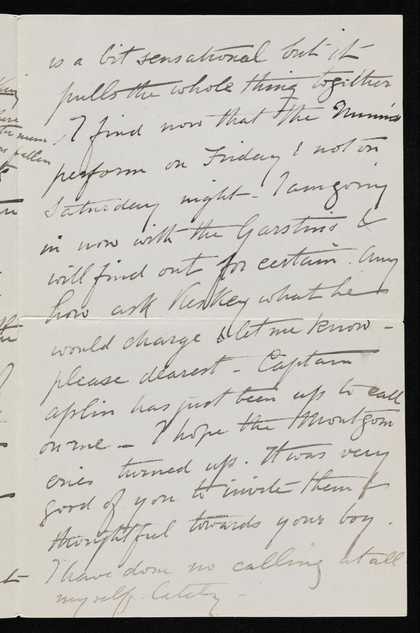 is a bit sensational but it
pulls the whole thing together
I find now that the Mimms
perform on Friday & not on
Saturday night - I am going
in now with the Garstins &
will find out for certain. Any
how ask what he
would charge & let me know -
please dearest - Captain
Aplin has just been up to call
on me - I hope the Montgom
eries turned up. It was very
good of you to invite them &
thoughtful towards your boy.
I have done no calling at all
myself.